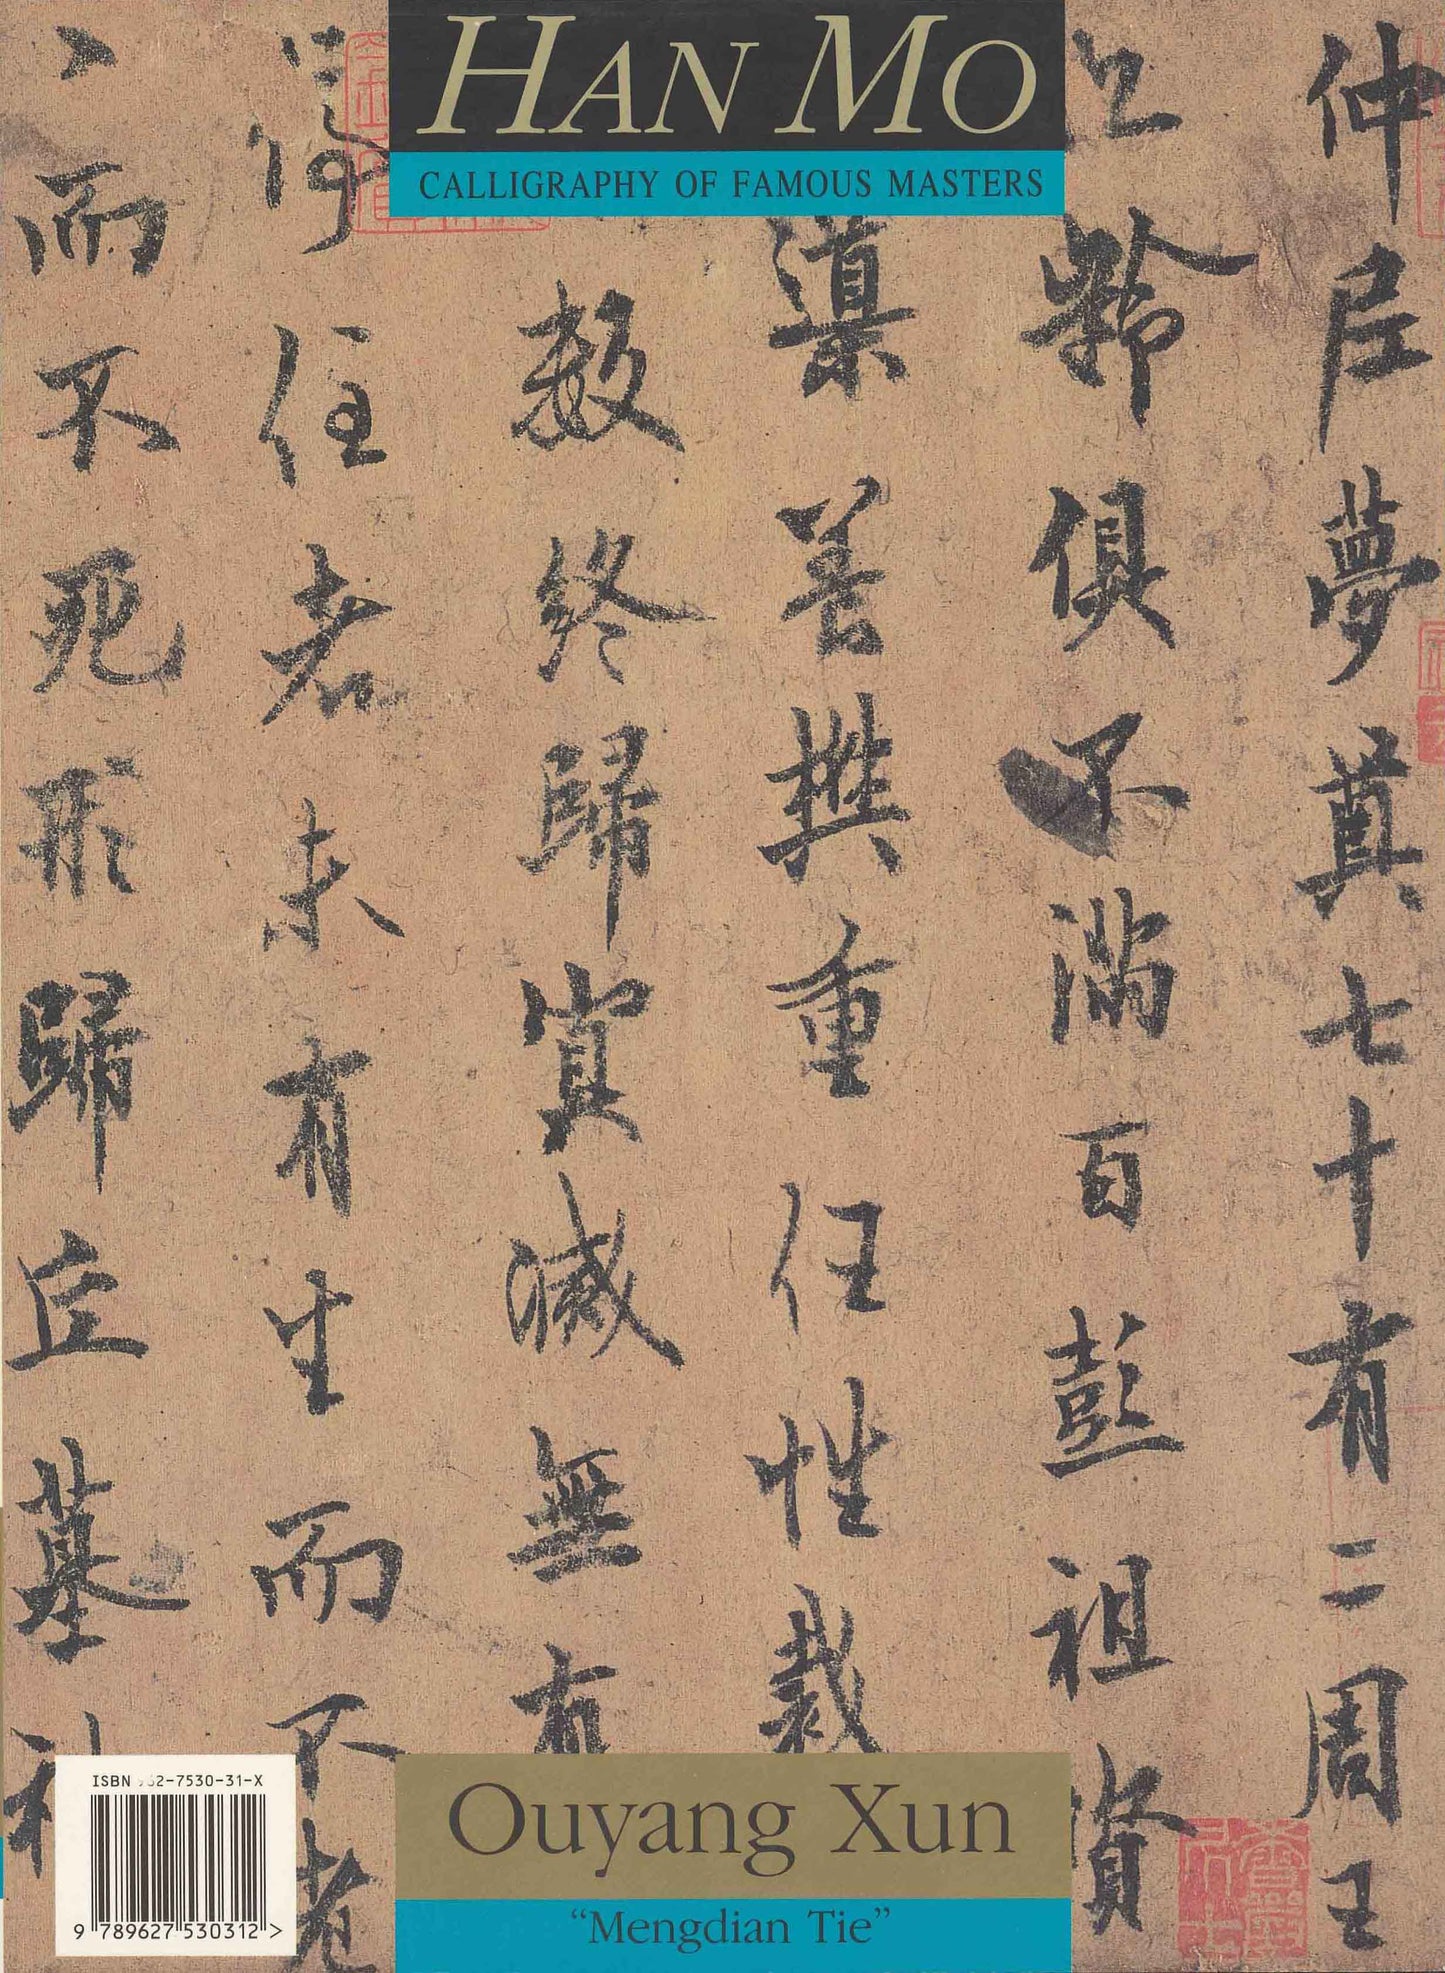 HAN MO
CALLIGRAPHY OF FAMOUS MASTERS
仲尼夢奠七十有二周王
齡俱不滿百彭祖資
滇善撰重任性裁
數終歸冥滅無有
得住者未有生而不老
〻而不死形歸丘墓神
ISBN 62-7530-31-X
9 789627 530312 >
Ouyang Xun
“Mengdian Tie”